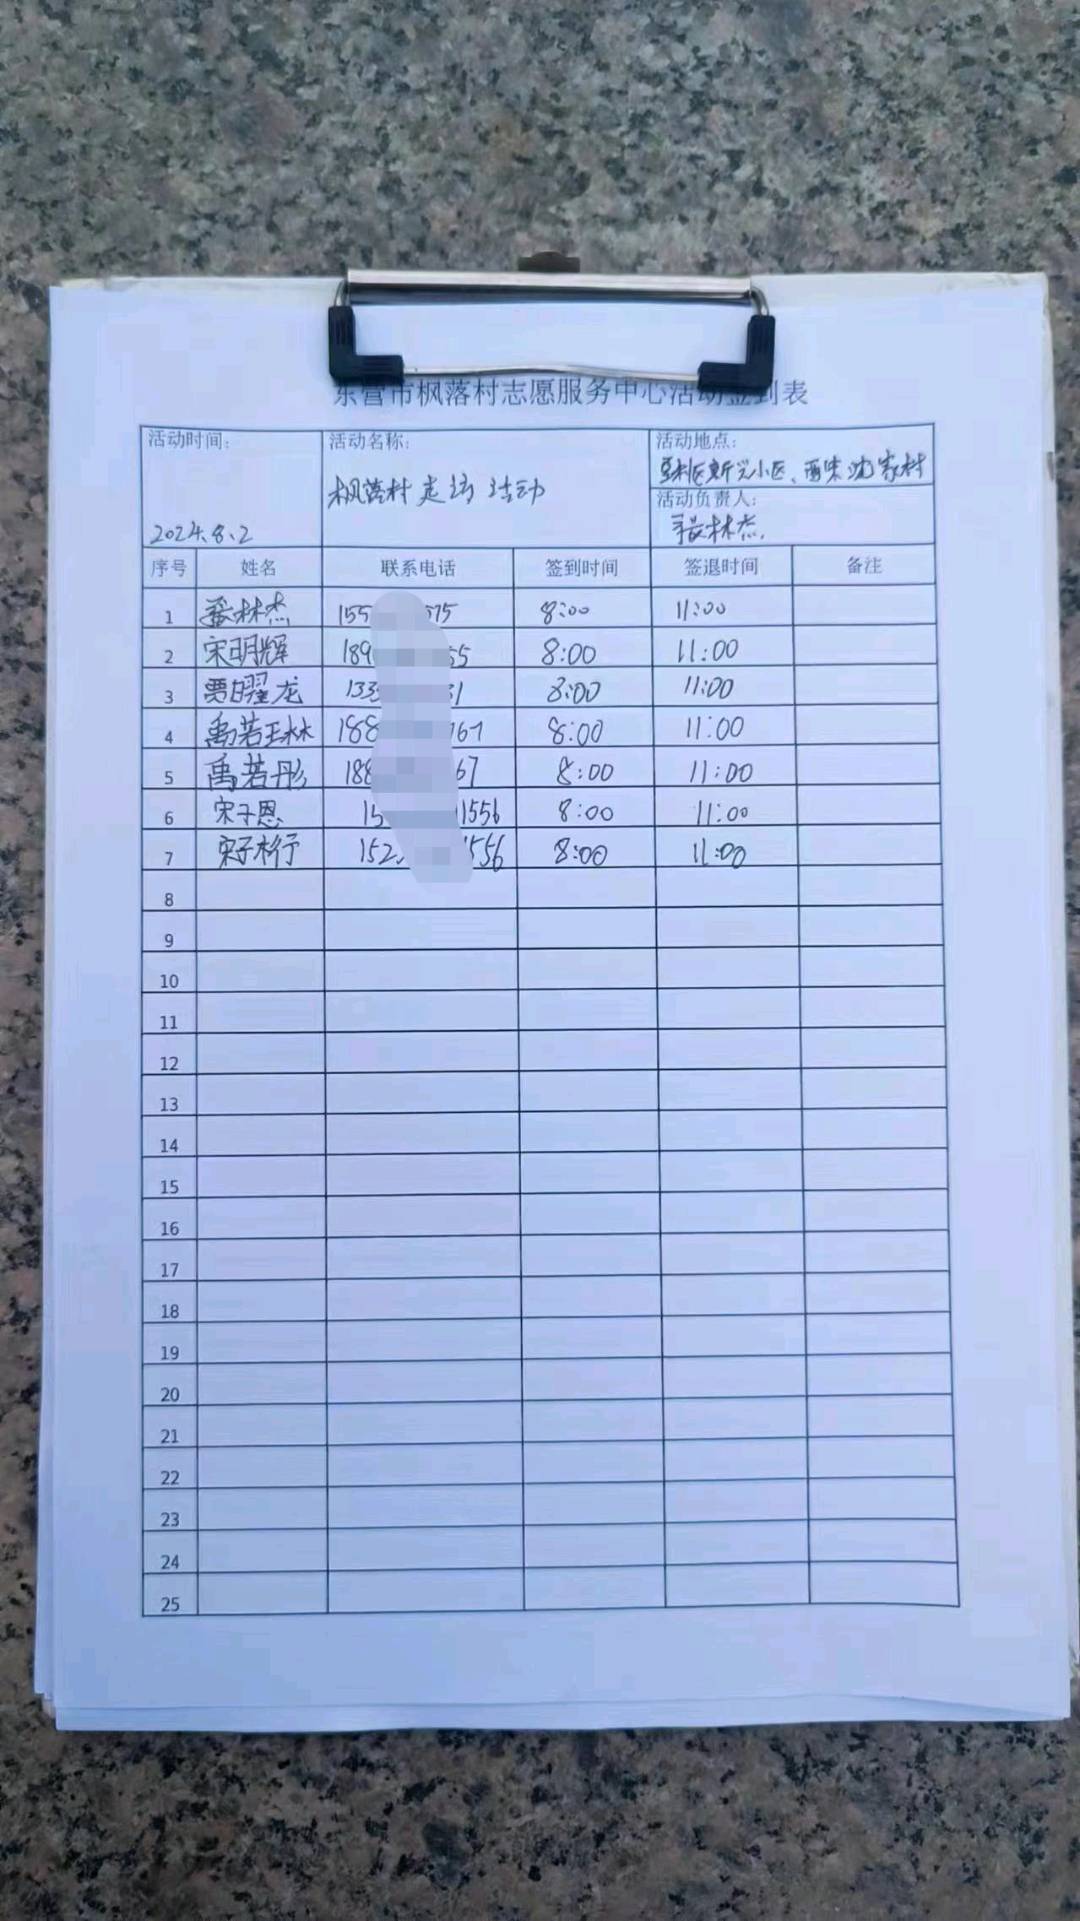 东营市枫落村志愿服务中心活动签到表
活动时间: 活动名称: 活动地点:
垦利区新兴小区、西宋沈家村
枫落村走访活动
活动负责人:
2024.8.2 林杰
序号 姓名 联系电话 签到时间 签退时间 备注
1 林杰 155 575 8:00 11:00
2 宋明辉 189 55 8:00 11:00
3 贾曜龙 133 31 8:00 11:00
4 禹若琳 188 767 8:00 11:00
5 禹若彤 188 67 8:00 11:00
6 宋子恩 15 1556 8:00 11:00
7 宋子桁 152 556 8:00 11:00
8
9
10
11
12
13
14
15
16
17
18
19
20
21
22
23
24
25